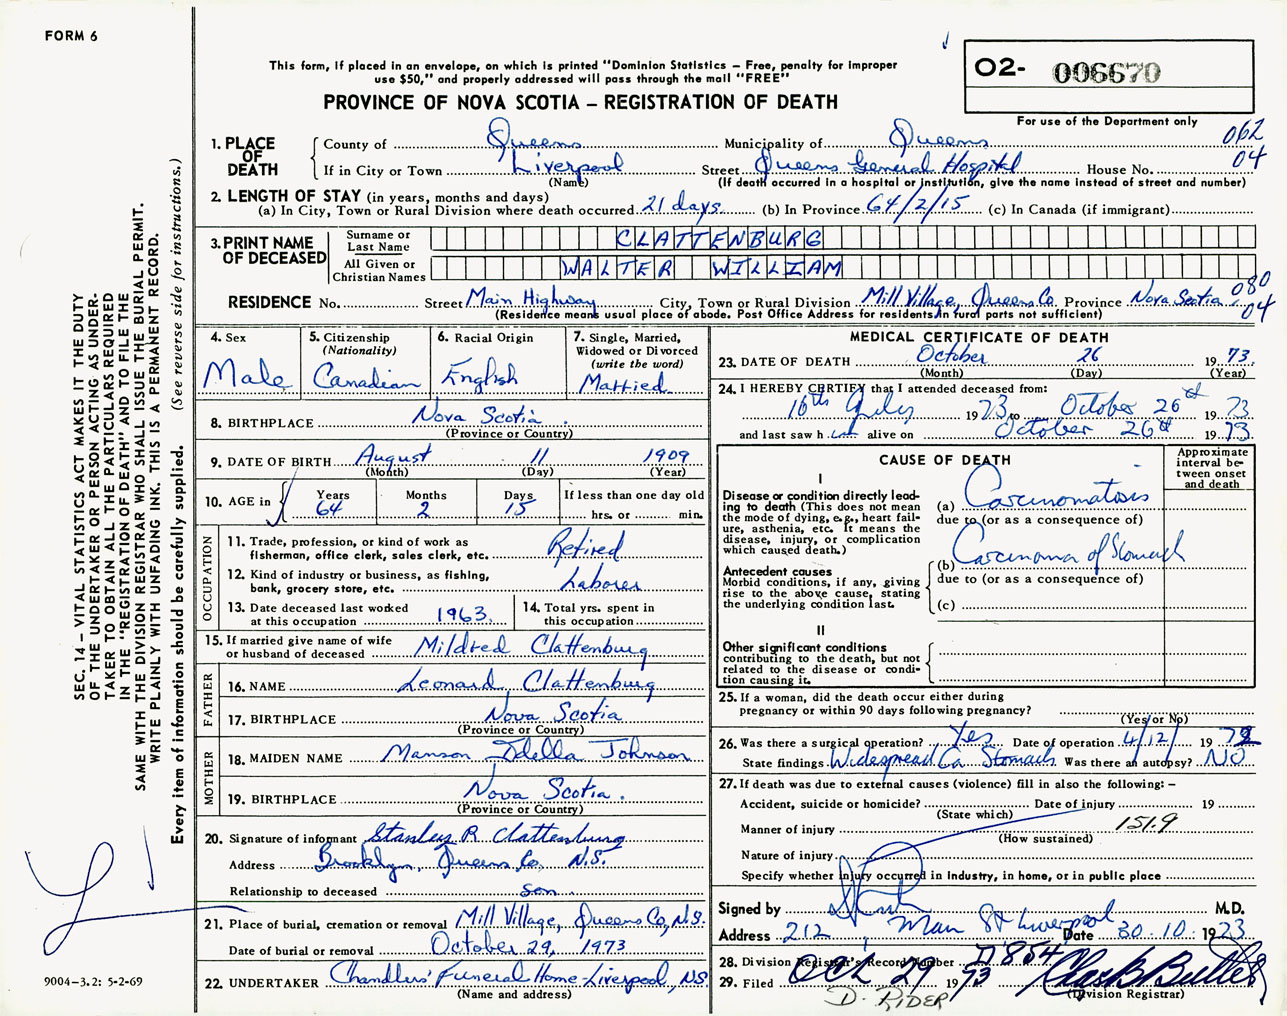 FORM 6
This form, if placed in an envelope, on which is printed "Dominion Statistics – Free, penalty for improper
use $50," and properly addressed will pass through the mail "FREE"
PROVINCE OF NOVA SCOTIA – REGISTRATION OF DEATH
02- 006670
For use of the Department only
062
04
1. PLACE OF DEATH
County of Queens Municipality of Queens
If in City or Town Liverpool Street Queens General Hospital House No.
(Name) (If death occurred in a hospital or institution, give the name instead of street and number)
2. LENGTH OF STAY (in years, months and days)
(a) In City, Town or Rural Division where death occurred 21 days. (b) In Province 64/2/15 (c) In Canada (if immigrant)
3. PRINT NAME OF DECEASED
Surname or Last Name CLATTENBURG
All Given or Christian Names WALTER WILLIAM
RESIDENCE No. Street Main Highway City, Town or Rural Division Mill Village, Queens Co. Province Nova Scotia
080
04
(Residence means usual place of abode. Post Office Address for residents in rural parts not sufficient)
4. Sex
Male
5. Citizenship
(Nationality)
Canadian
6. Racial Origin
English
7. Single, Married,
Widowed or Divorced
(write the word)
Married
8. BIRTHPLACE Nova Scotia.
(Province or Country)
9. DATE OF BIRTH August 11 1909
(Month) (Day) (Year)
10. AGE in
Years 64
Months 2
Days 15
If less than one day old
hrs. or min.
OCCUPATION
11. Trade, profession, or kind of work as
fisherman, office clerk, sales clerk, etc. Retired
12. Kind of industry or business, as fishing,
bank, grocery store, etc. Laborer
13. Date deceased last worked
at this occupation 1963.
14. Total yrs. spent in
this occupation
15. If married give name of wife
or husband of deceased Mildred Clattenburg
FATHER
16. NAME Leonard Clattenburg
17. BIRTHPLACE Nova Scotia
(Province or Country)
MOTHER
18. MAIDEN NAME Manson Idella Johnson
19. BIRTHPLACE Nova Scotia.
(Province or Country)
20. Signature of informant Stanley R Clattenburg
Address Brooklyn, Queens Co, N.S.
Relationship to deceased son.
21. Place of burial, cremation or removal Mill Village, Queens Co, N.S.
Date of burial or removal October 29, 1973
22. UNDERTAKER Chandlers' Funeral Home - Liverpool, NS
(Name and address)
MEDICAL CERTIFICATE OF DEATH
23. DATE OF DEATH October 26 1973.
(Month) (Day) (Year)
24. I HEREBY CERTIFY that I attended deceased from:
16th 1973 to October 26th 1973
and last saw h alive on October 26th 1973
CAUSE OF DEATH
Approximate
interval be-
tween onset
and death
I
Disease or condition directly lead-
ing to death (This does not mean
the mode of dying, e.g., heart fail-
ure, asthenia, etc. It means the
disease, injury, or complication
which caused death.)
(a) Carcinomatosis
due to (or as a consequence of)
Antecedent causes
Morbid conditions, if any, giving
rise to the above cause, stating
the underlying condition last.
(b) Carcinoma of Stomach
due to (or as a consequence of)
(c)
II
Other significant conditions
contributing to the death, but not
related to the disease or condi-
tion causing it.
25. If a woman, did the death occur either during
pregnancy or within 90 days following pregnancy?
(Yes or No)
26. Was there a surgical operation? Yes Date of operation 4/12/ 1972
State findings Widespread Ca Stomach Was there an autopsy? NO
27. If death was due to external causes (violence) fill in also the following: –
Accident, suicide or homicide? Date of injury 19
(State which)
Manner of injury 151.9
(How sustained)
Nature of injury
Specify whether injury occurred in industry, in home, or in public place
Signed by M.D.
Address 212 Main St Liverpool Date 30-10-1973
28. Division Registrar's Record Number 854
29. Filed Oct 29 1973
(Division Registrar)
D. RIDER
SEC. 14 – VITAL STATISTICS ACT MAKES IT THE DUTY
OF THE UNDERTAKER OR PERSON ACTING AS UNDER-
TAKER TO OBTAIN ALL THE PARTICULARS REQUIRED
IN THE "REGISTRATION OF DEATH" AND TO FILE THE
SAME WITH THE DIVISION REGISTRAR WHO SHALL ISSUE THE BURIAL PERMIT.
WRITE PLAINLY WITH UNFADING INK. THIS IS A PERMANENT RECORD.
Every item of information should be carefully supplied. (See reverse side for instructions.)
9004-3.2: 5-2-69